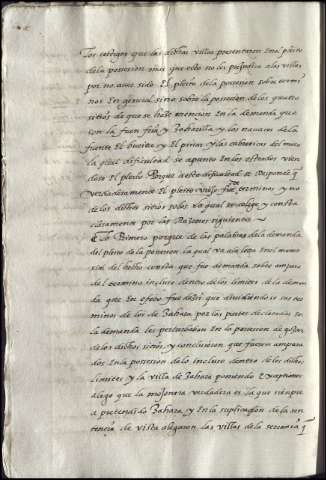 Los testigos que las dichas villas presentaron en el pleito
de la posesion mas que esto no les perjudica a las villas
por no aver sido el pleito de la posesion sobre termi
nos en general sino sobre la posesion de los quatro
sitios de que se haze mencion en la demanda que
son la fuen fria y Robredillo y los navazos de la
fuente el y el pinar y las cabezas del
la qual dificultad se apunto en los estrados vien
dose el pleito Porque a esta dificultad se responde q
verdaderamente el pleito fue sobre terminos y no
de los dichos sitios solos lo qual se colige y consta
claramente por las Razones siguientes
Lo Primero porque de las palabras de la demanda
del pleito de la posesion la qual va a la letra en el memo
rial del hecho consta que fue demanda sobre amparo
del termino incluso dentro de los limites de la deman
da que en efecto fue dezir que dividiendose sus ter
minos de los de Zahara por las partes declaradas en
la demanda les perturbaban en la posesion de gozar
de los dichos sitios y concluieron que fuesen ampara
dos en la posesion de lo incluso dentro de los dichos
limites y la villa de Zahara poniendo exceptiones
alego que la mojonera verdadera es la que siempre
a pretendido Zahara, y en la suplicacion de la sen
tencia de vista alegaron las villas de la serrania q